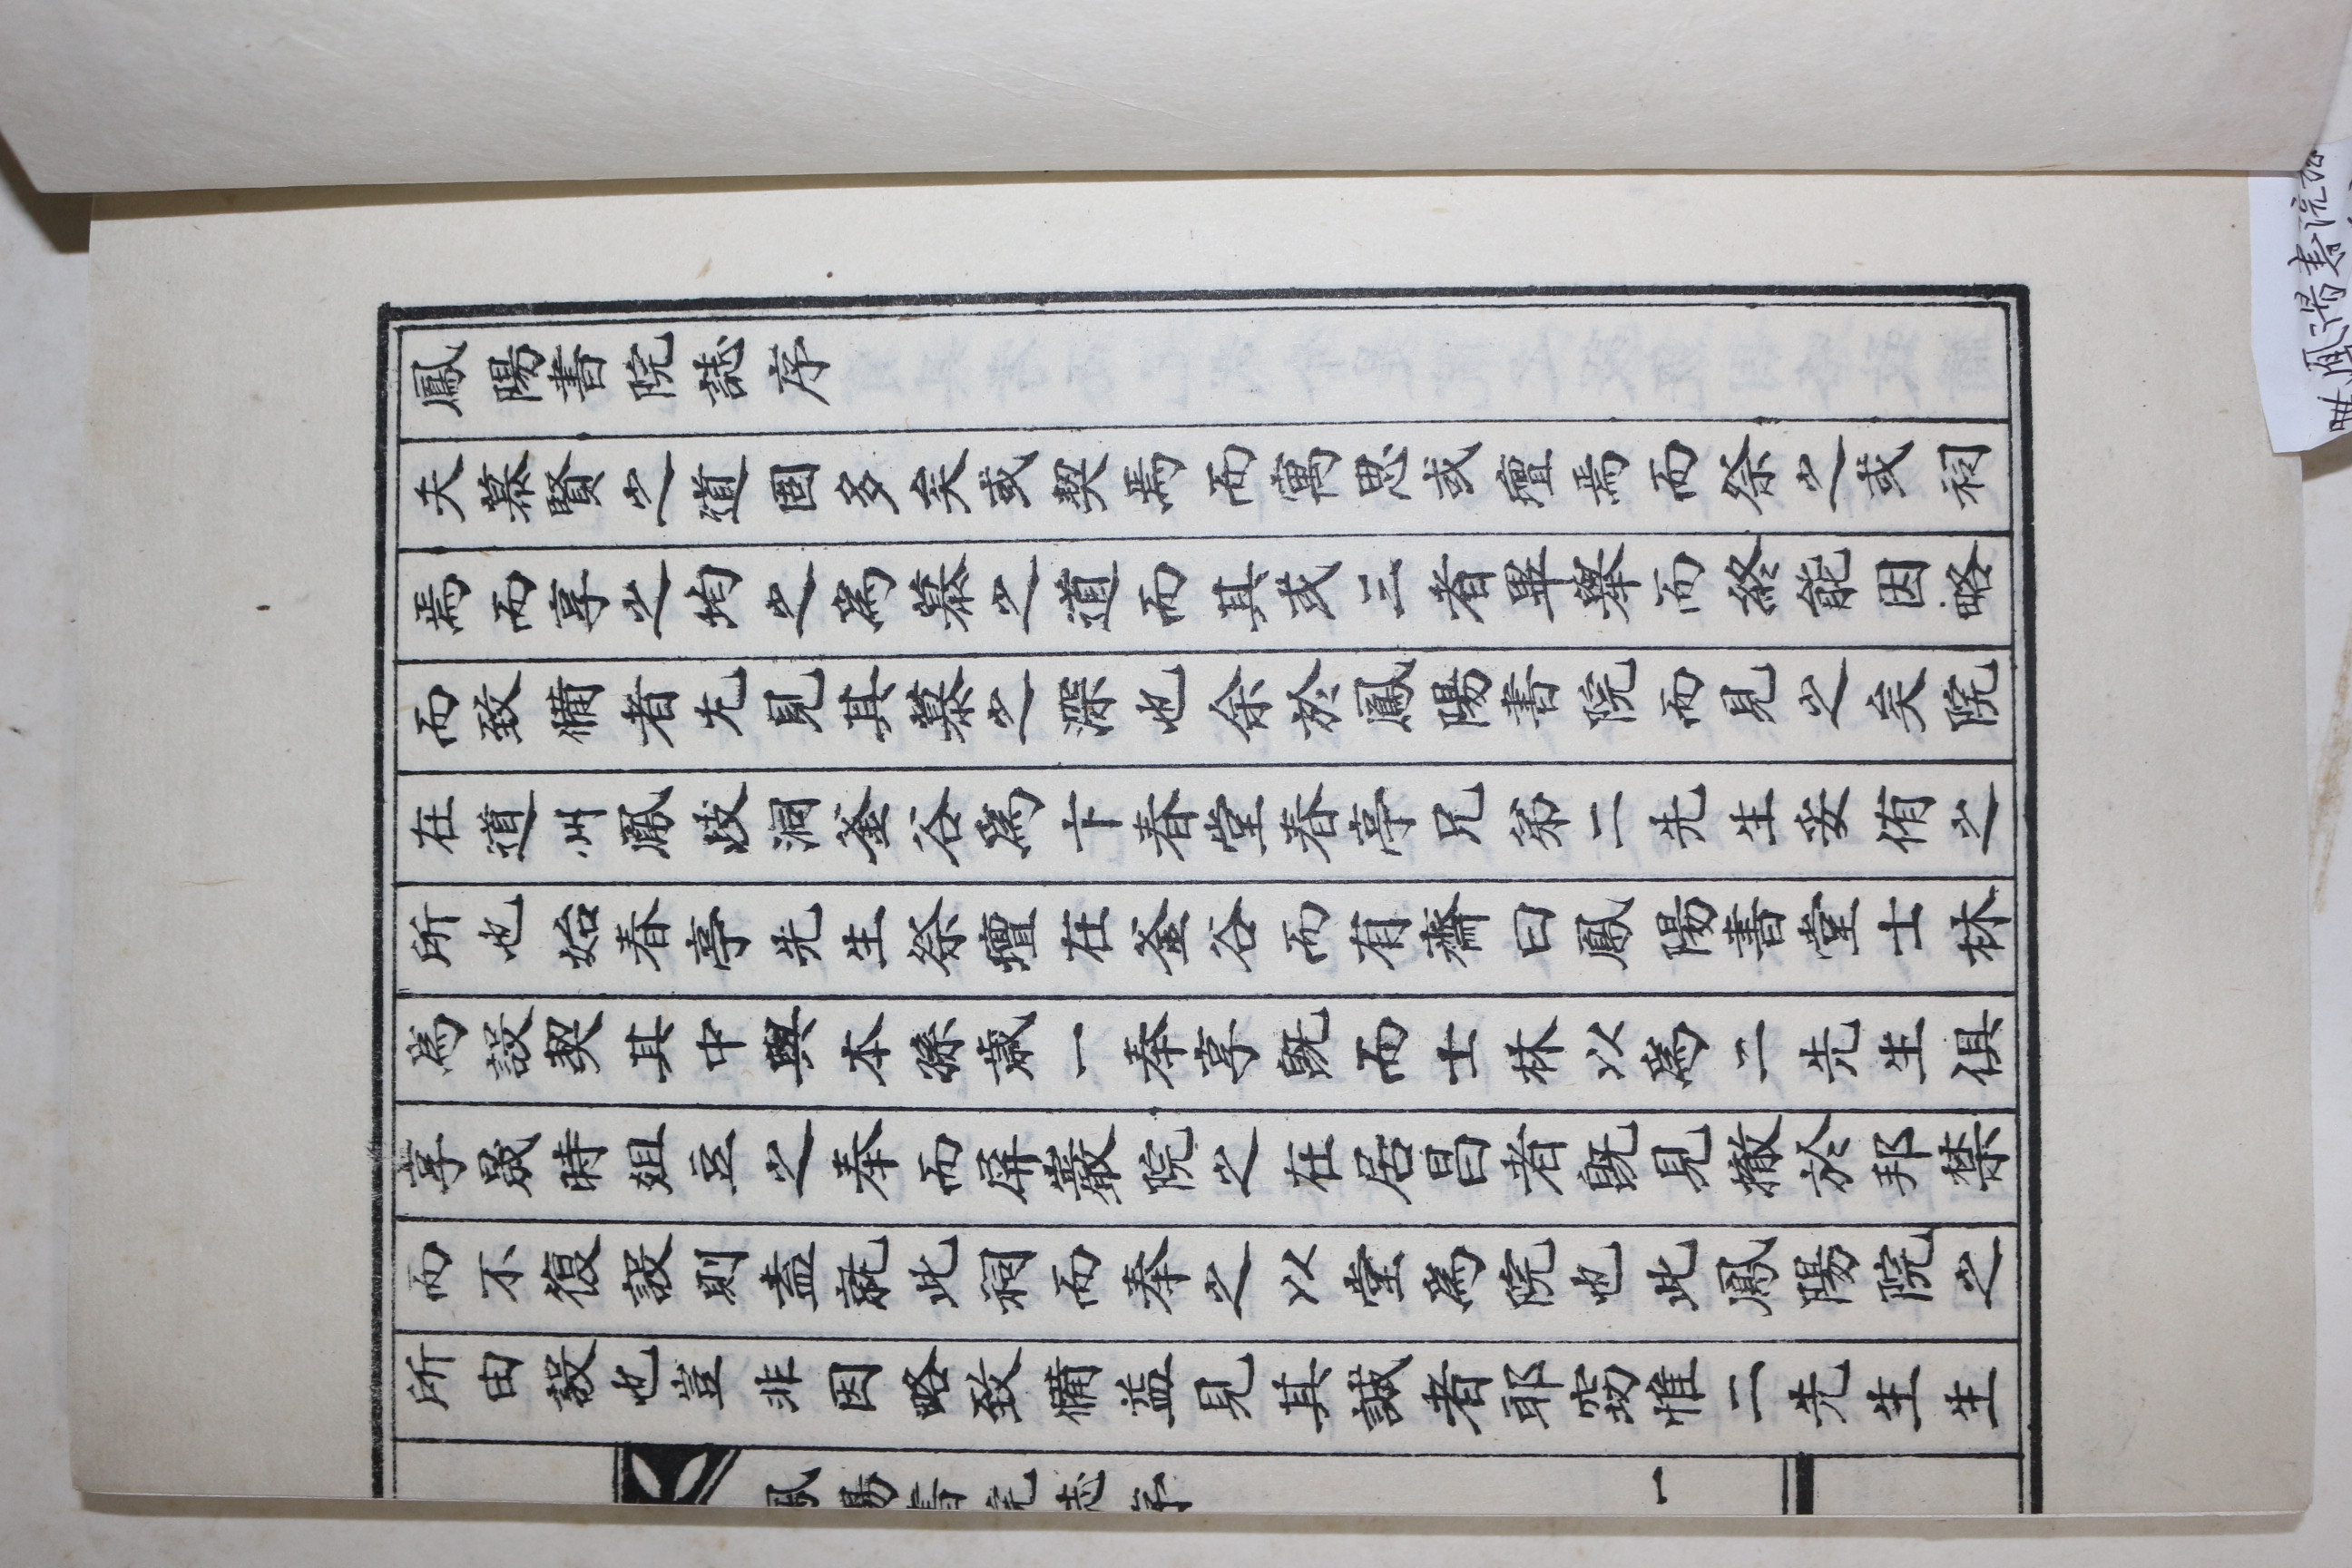 鳳陽書院誌序
夫慕賢之道固多矣或契焉而寓思或壇焉而祭之或祠
焉而享之均之爲慕之道而其或三者畢舉而終能因略
而致備者尤見其慕之深也余於鳳陽書院而見之矣院
在道州鳳歧洞釜谷爲卞春堂春亭兄弟二先生妥侑之
所也始春亭先生祭壇在釜谷而有齋曰鳳陽書堂士林
爲設契其中與本孫歲一奉享旣而士林以爲二先生俱
享晟時俎豆之奉而屏巖院之在居昌者旣見撤於邦禁
而不復設則盍就此祠而奉之以堂爲院也此鳳陽院之
所由設也豈非因略致備益見其誠者耶窃惟二先生生
鳳陽書院誌序
一
鳳陽書院